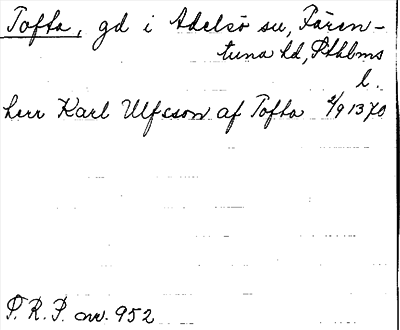 Tofta, gd i Adelsö sn, Fären-
tuna hd, Sthlms
l.
herr Karl Ulfsson af Tofta 2/9 1370
P. R. P. nr. 952